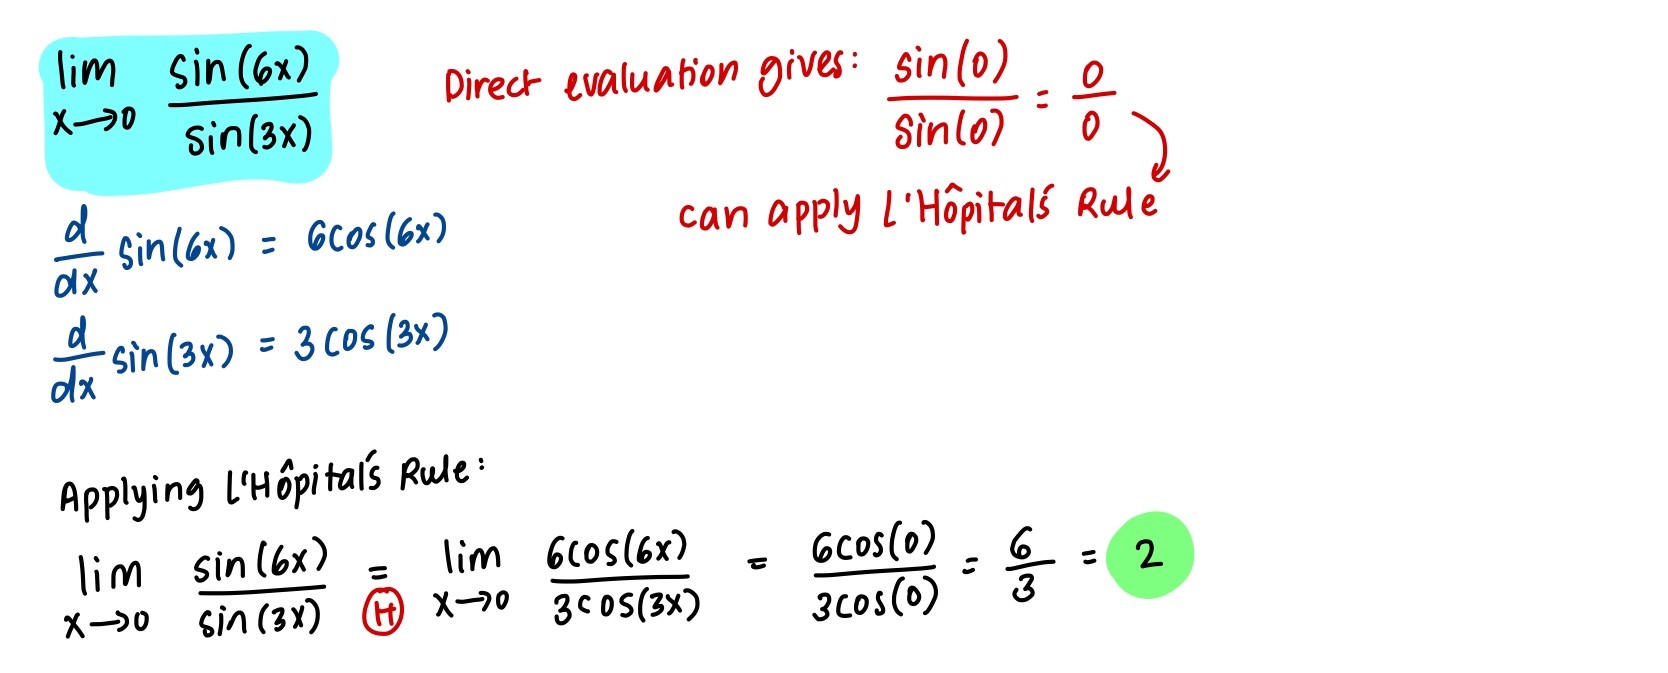 lim x→0 sin(6x)/sin(3x)
Direct evaluation gives: sin(0)/sin(0) = 0/0
can apply L'Hôpital's Rule
d/dx sin(6x) = 6cos(6x)
d/dx sin(3x) = 3cos(3x)
Applying L'Hôpital's Rule:
lim x→0 sin(6x)/sin(3x) = H lim x→0 6cos(6x)/3cos(3x) = 6cos(0)/3cos(0) = 6/3 = 2